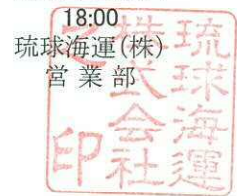 18:00
琉球海運(株)
営業部
琉球海運
株式会社
之印